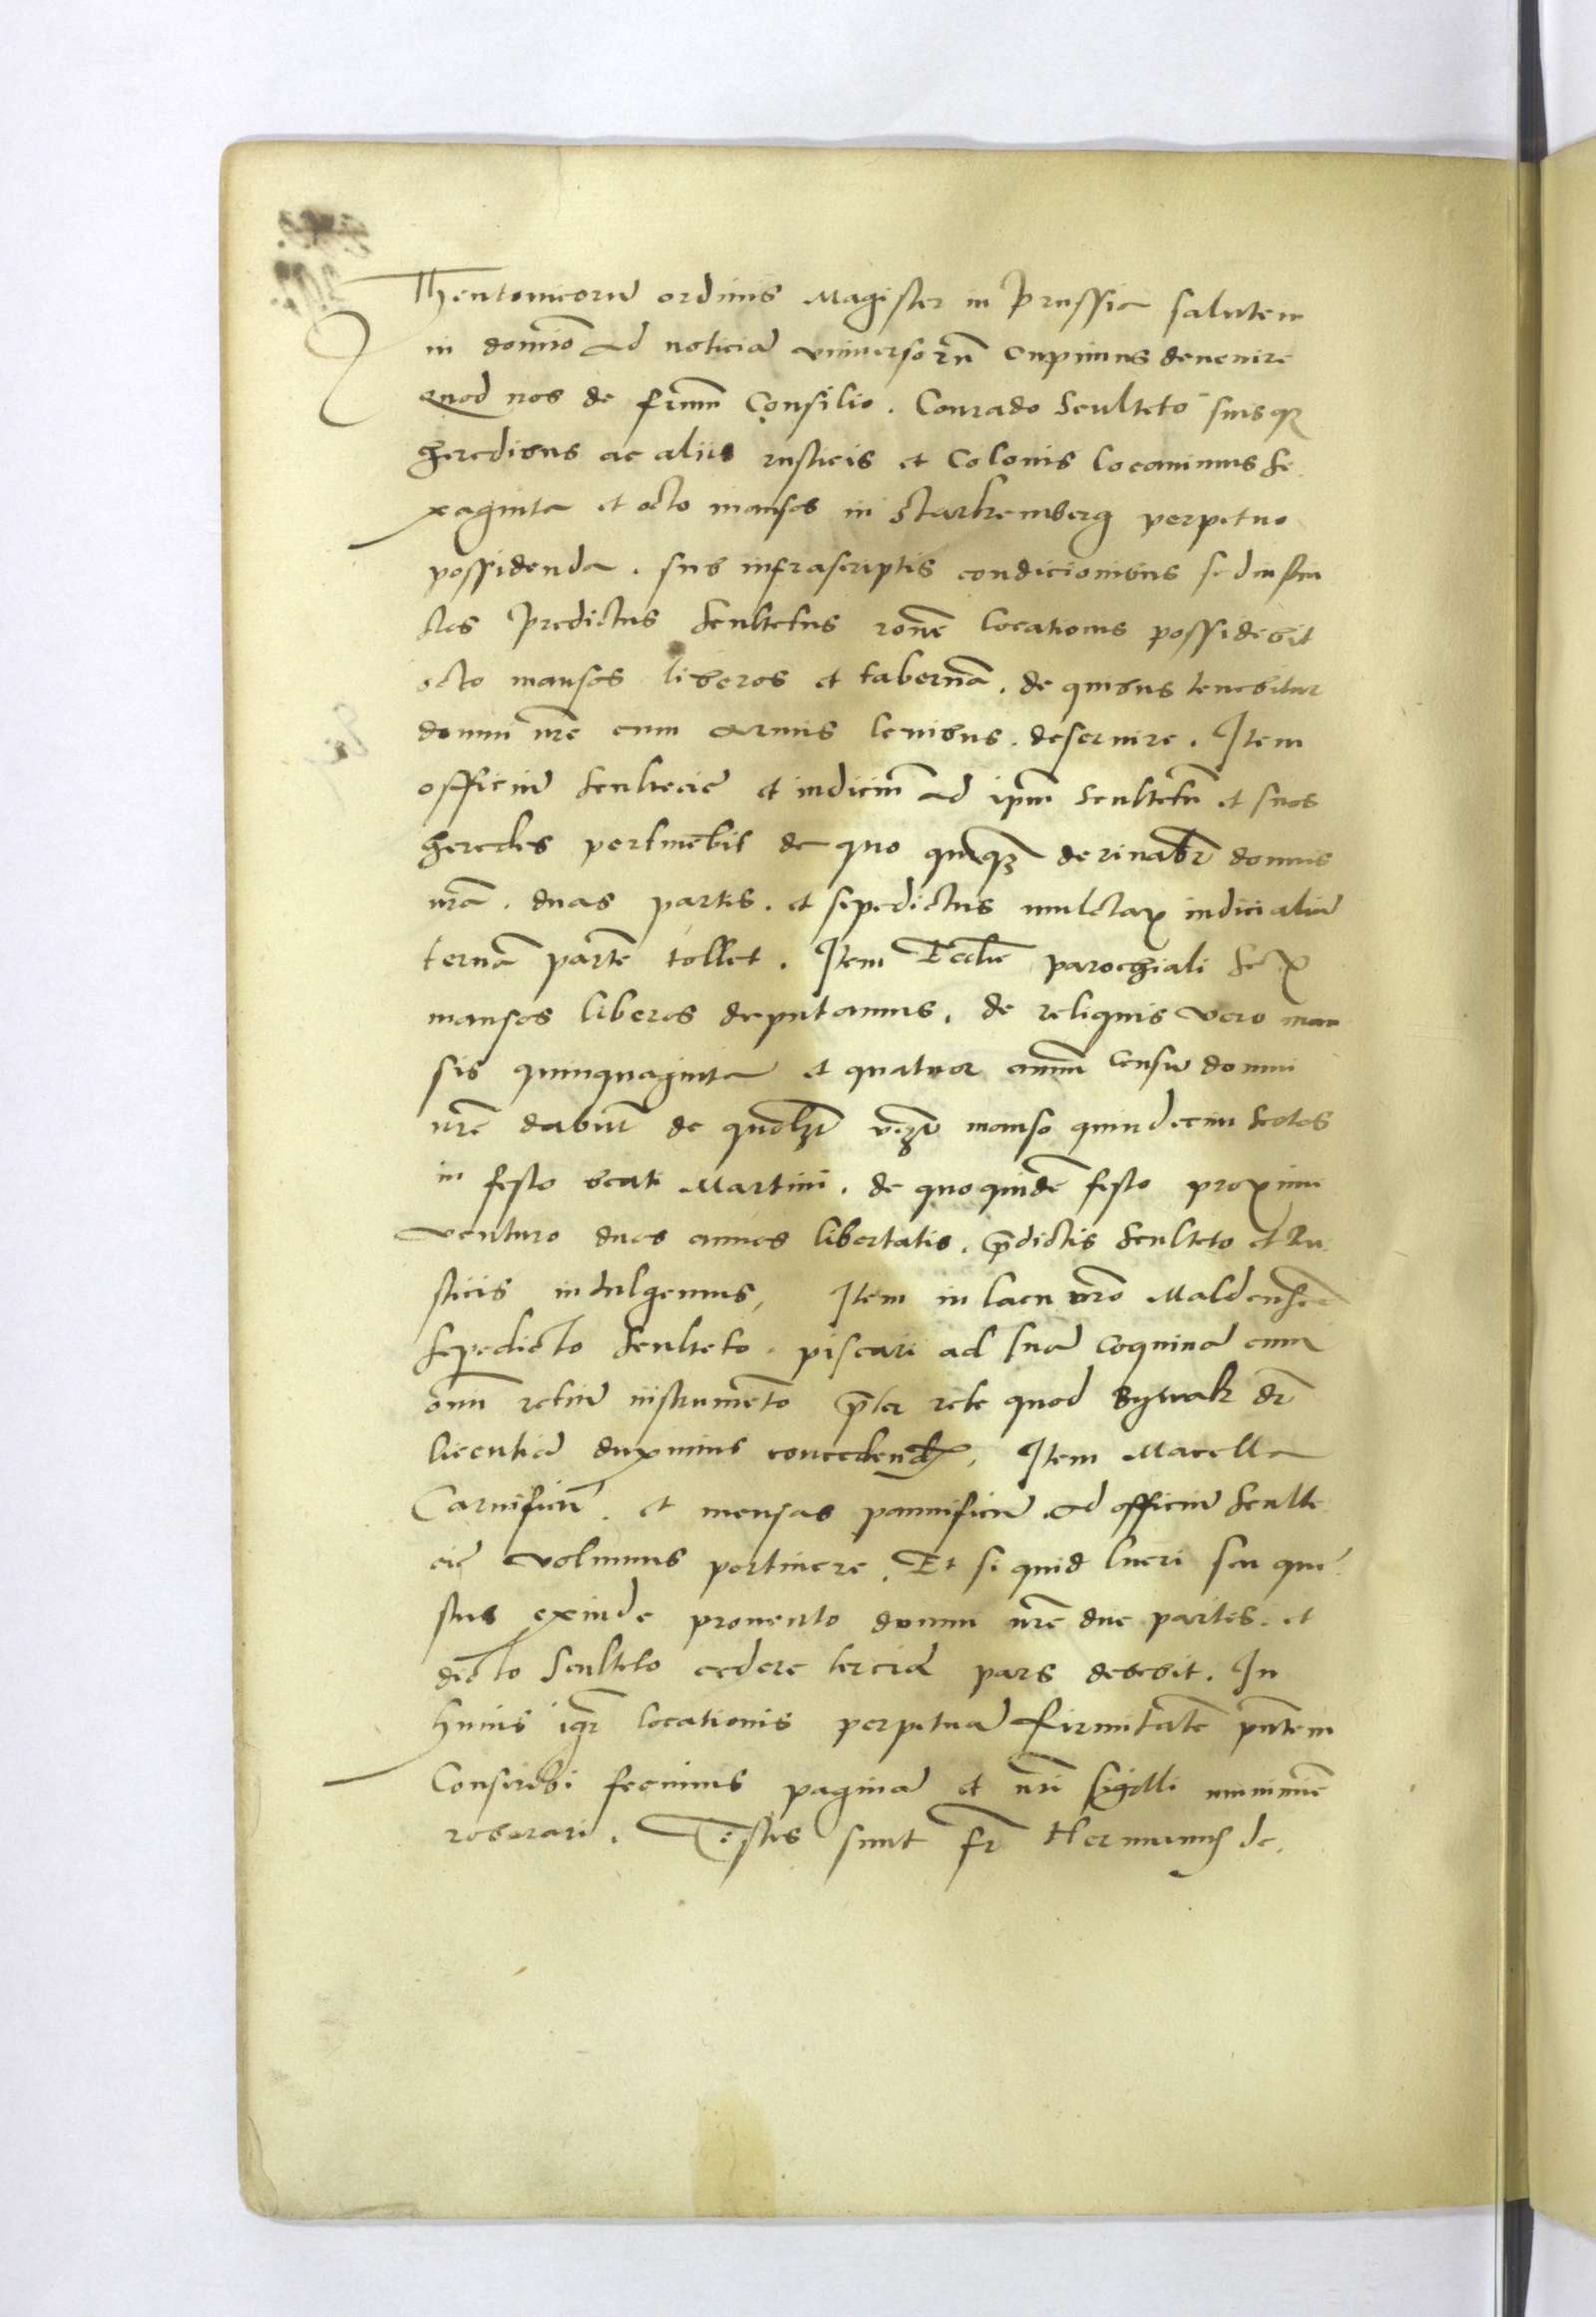 Theutonicorū ordinis Magister in Prussia salutem
in domīo ad noticiā vniuersorū cupimus deuenire
quod nos de frm̄m Consilio. Conrado Sculteto suisqꝫ
heredibus ac aliis rusticis et Colonis locauimus se
xaginta et octo mansos in Starkemberg perpetuo
possidenda. sub infrascriptis condicionibus
Predictus Scultetus rōne locationis possidebit
octo mansos liberos et tabernā. de quibus tenebitur
domui nr̄e cum armis leuibus. deseruire. Item
officiū Scultecie et iudiciū ad ipm̄ Scultetū et suos
heredes pertinēbit de quo domus
nrā. duas partes. et sepedictus mulctaꝝ iudicialiū
ternā partē tollet. Item Ecclīe parochiali sex
mansos liberos deputamus. de reliquis vero man
sis quinquaginta et quatuor annuū Censū domui
nr̄e dabūt de quolꝫt manso quindecim scotos
in festo beati Martini. de quoquidē festo proximo
venturo duos annos libertatis. p̄dictis Sculteto et Ru
sticis indulgemus, Item in lacu nrō Maldensee
Sepedicto Sculteto. piscari ad suā coquinā cum
omī retiū instrumēto p̄ter rete quod Nywat dr̄
licentiā duximus concedendā, Item Macella
Carnificū. et mensas pannificū ad officiū Sculte
cie volumus pertinere. Et si quid lucri seu que
stus exinde prouento domui nr̄e due partes. et
dicto Sculteto cedere terciā pars debebit. In
huius igr̄ locationis perpetuā firmitatē pn̄tem
Conscribi fecimus paginā et nr̄i sigilli munimīe
roborari. Testes sunt fr̄ Hermanus de.